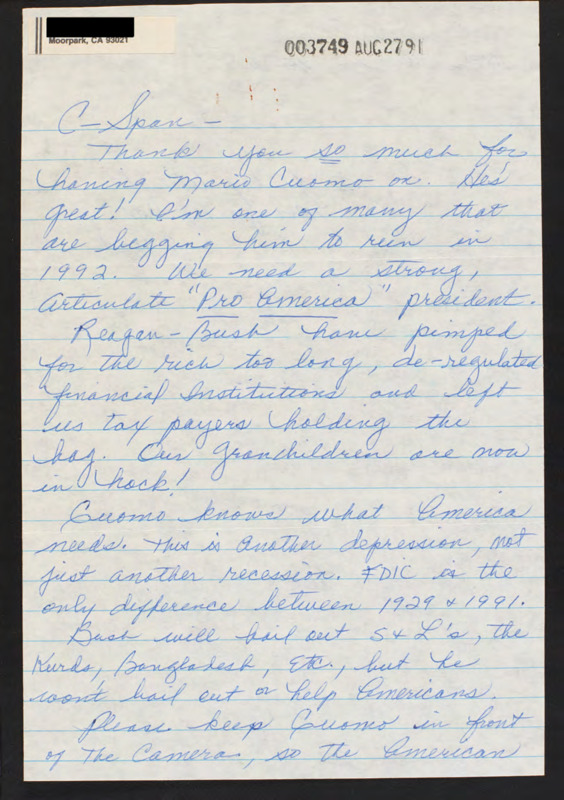 Moorpark, CA 93021
003749 AUG2791
C-Span -
Thank you so much for
having Mario Cuomo on. He's
great! I'm one of many that
are begging him to run in
1992. We need a strong,
articulate "Pro America" president.
Reagan-Bush have pimped
for the rich too long, de-regulated
financial Institutions and left
us tax payers holding the
bag. Our grandchildren are now
in hock!
Cuomo knows what America
needs. This is another depression, not
just another recession. FDIC is the
only difference between 1929 & 1991.
Bush will bail out S & L's, the
Kurds, Bangladesh, Etc., but he
won't bail out or help Americans.
Please keep Cuomo in front
of The Camera, so the American